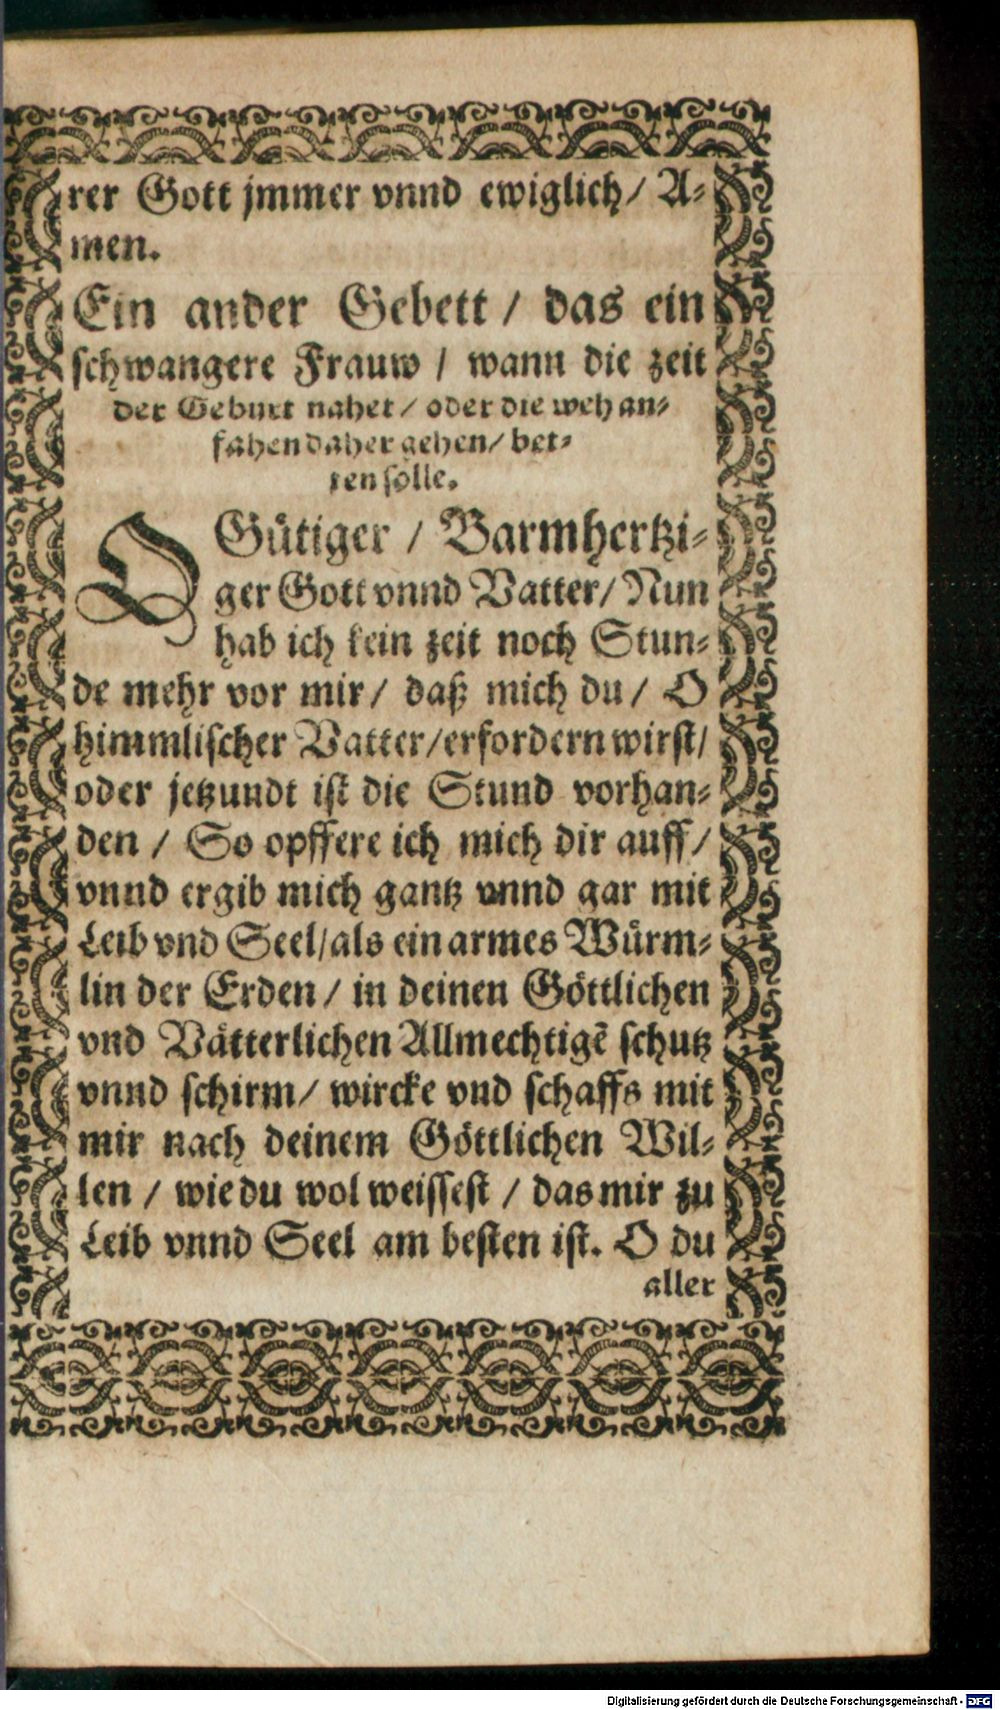 rer Gott jmmer vnnd ewiglich/ A-
men.
Ein ander Gebett / das ein
schwangere Frauw / wann die zeit
der Geburt nahet / oder die weh an-
fahen daher gehen/ bet-
ten sölle.
O Gütiger / Barmhertzi-
ger Gott vnnd Vatter/ Nun
hab ich kein zeit noch Stun-
de mehr vor mir/ daß mich du/ O
himmlischer Vatter/erfordern wirst/
oder jetzundt ist die Stund vorhan-
den / So opffere ich mich dir auff/
vnnd ergib mich gantz vnnd gar mit
Leib vnd Seel/als ein armes Würm-
lin der Erden / in deinen Göttlichen
vnd Vätterlichen Allmechtigẽ schutz
vnnd schirm/ wircke vnd schaffs mit
mir nach deinem Göttlichen Wil-
len / wie du wol weissest / das mir zu
Leib vnnd Seel am besten ist. O du
aller
Digitalisierung gefördert durch die Deutsche Forschungsgemeinschaft - DFG